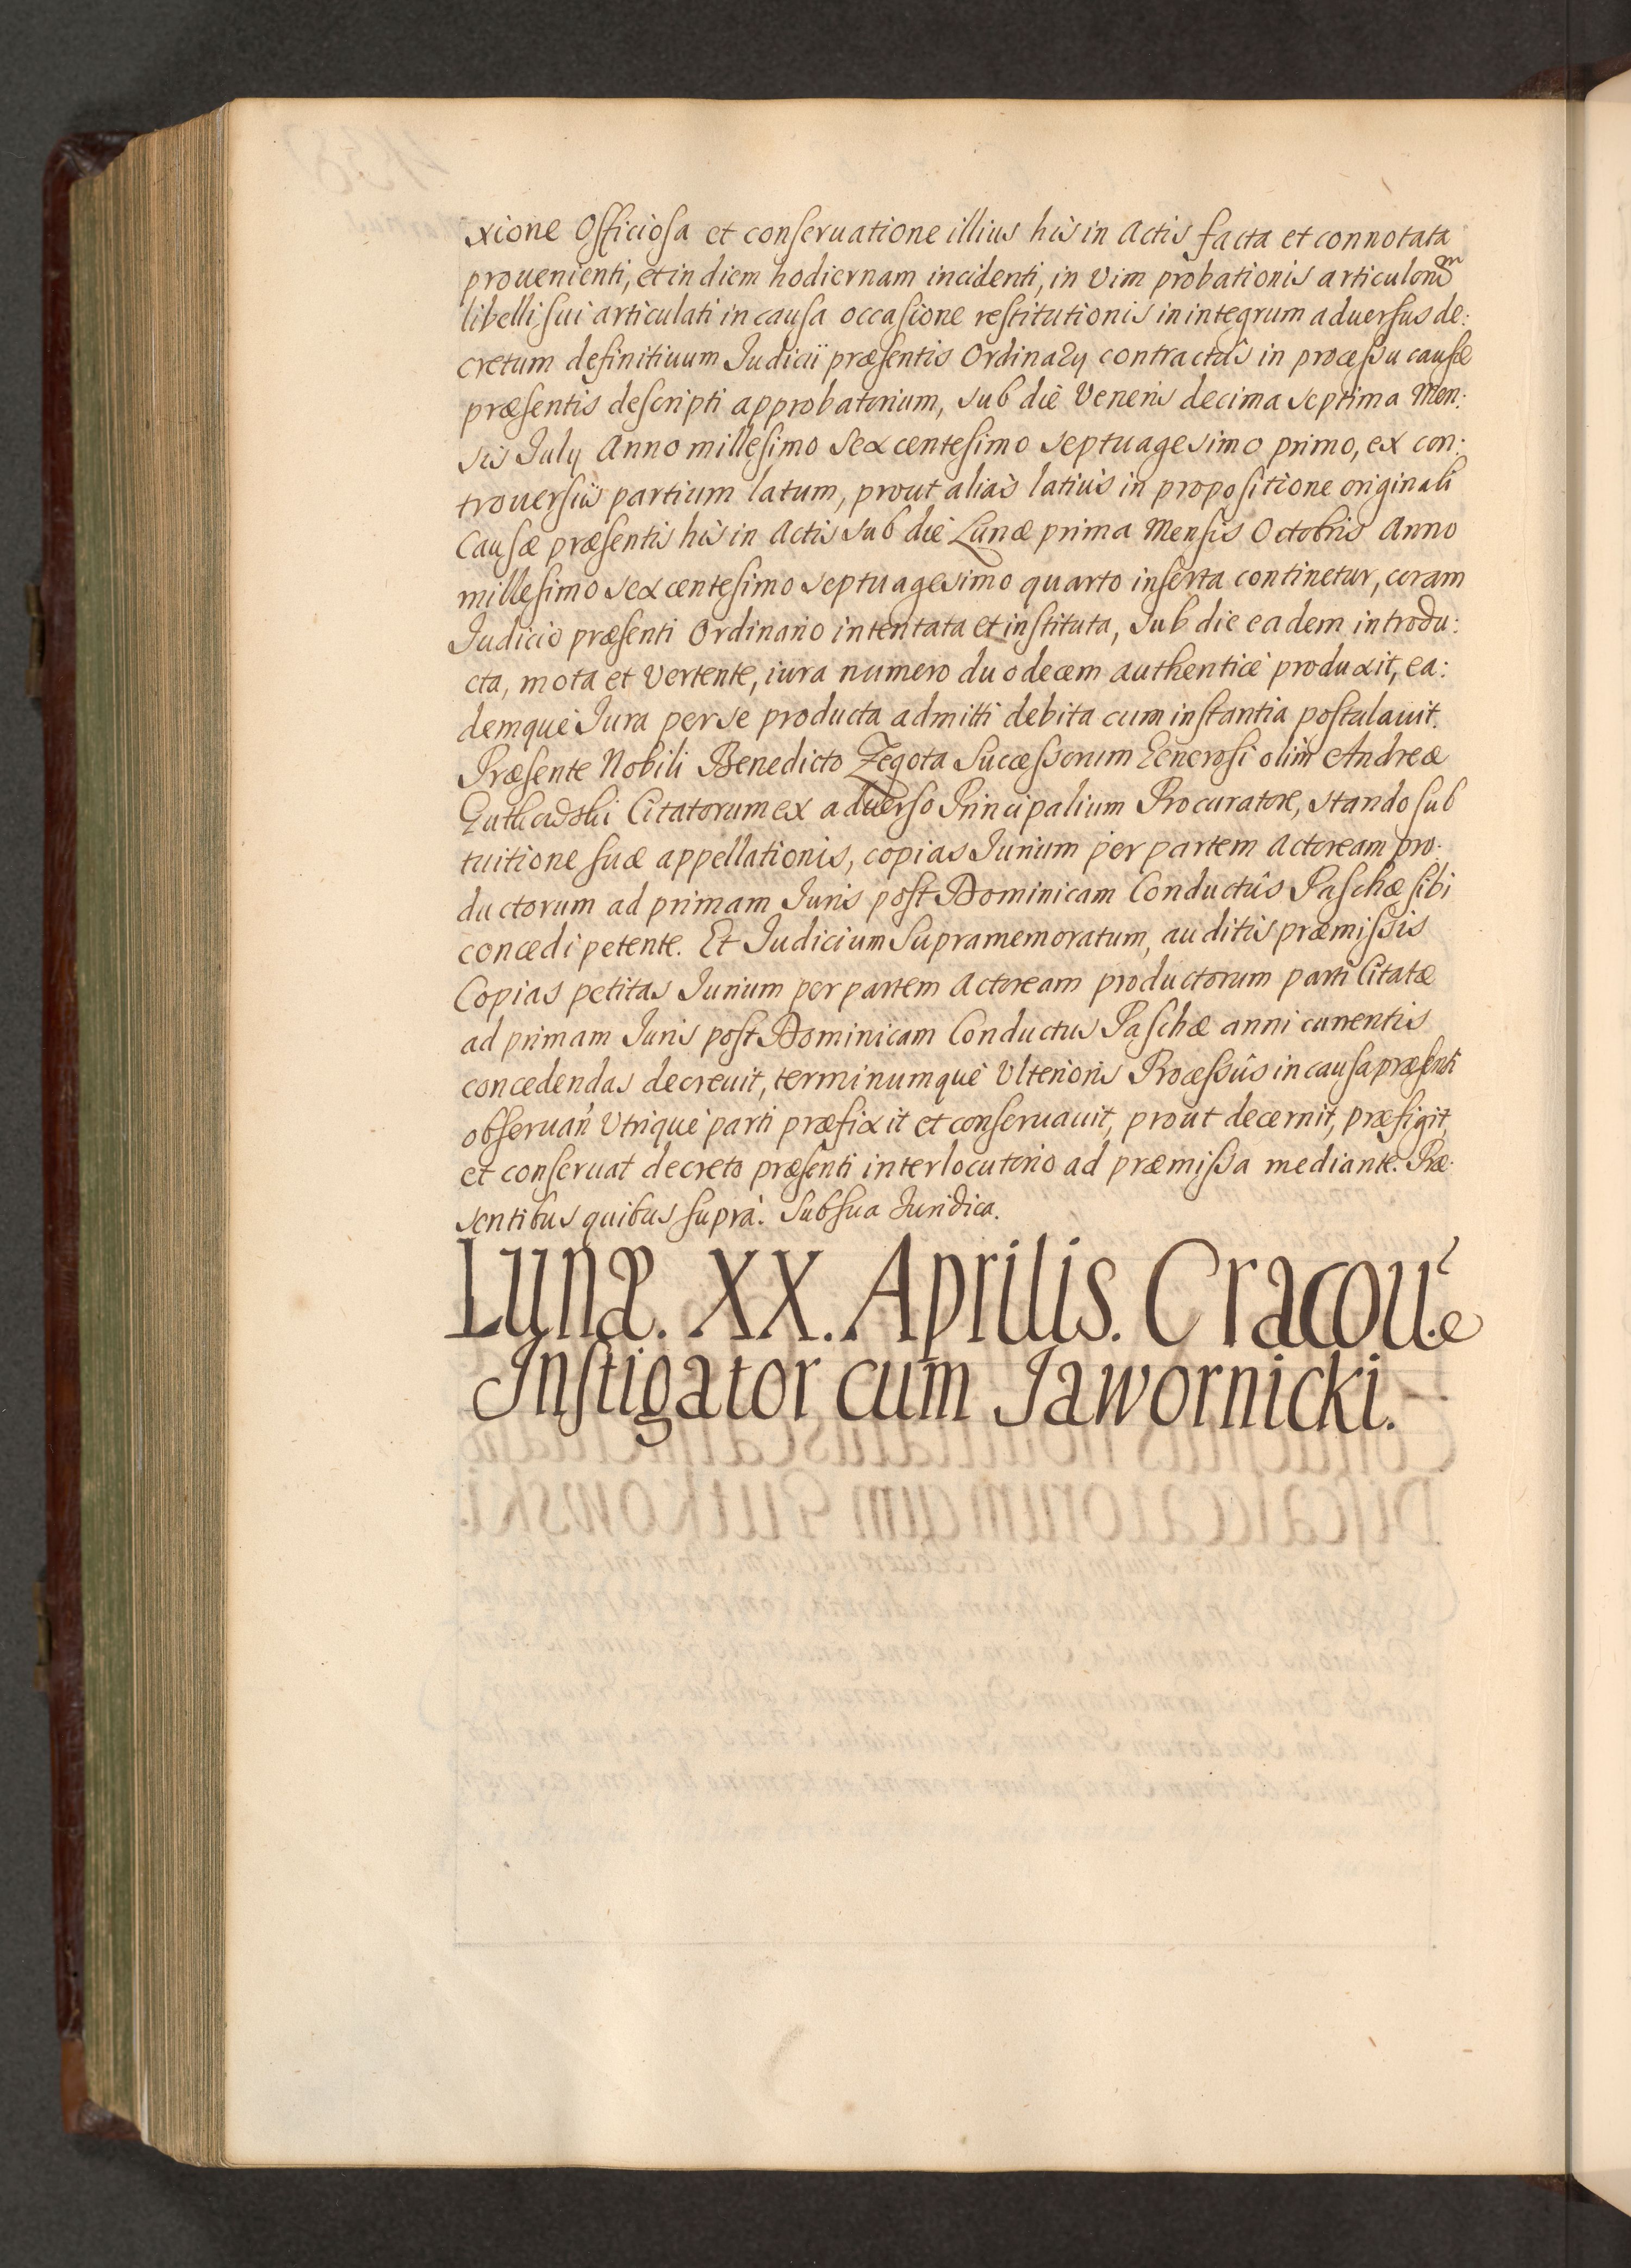 xione Officiosa et conseruatione illius his in Actis facta et connotata
prouenienti, et in diem hodiernam incidenti, in vim probationis articulorum
libelli sui articulati in causa occasione restitutionis in integrum aduersus de:
cretum definitiuum Judicii præsentis Ordinarij contractûs in processu causæ
præsentis descripti approbatorium, sub die Veneris decima septima Men:
sis July Anno millesimo sexcentesimo septuagesimo primo, ex con:
trouersiis partium latum, prout aliàs latius in propositione originali
Causæ præsentis his in Actis sub die Lunæ prima Mensis Octobris Anno
millesimo sexcentesimo septuagesimo quarto inserta continetur, coram
Judicio præsenti Ordinario intentata et instituta, sub die eadem introdu:
cta, mota et vertente, iura numero duodecem authenticè produxit, ea:
demque Jura per se producta admitti debita cum instantia postulauit.
Præsente Nobili Benedicto Zegota Successorum Generosi olim Andreæ
Citatorum ex aduerso Principalium Procuratore, stando sub
tuitione suæ appellationis, copias Jurium per partem Actoream pro:
ductorum ad primam Juris post Dominicam Conductûs Paschæ sibi
concedi petente. Et Judicium Supramemoratum, auditis præmissis
Copias petitas Jurium per partem Actoream productorum parti Citatæ
ad primam Juris post Dominicam Conductus Paschæ anni currentis
concedendas decreuit, terminumque Vlterioris Processûs in causa præsenti
obseruan̄ Vtrique parti præfixit et conseruauit, prout decernit, præfigit,
et conseruat decreto præsenti interlocutorio ad præmissa mediante. Præ:
sentibus quibus suprà. Subsua Juridica.
Lunæ. XX. Aprilis. Cracouiæ
Instigator cum Jawornicki.